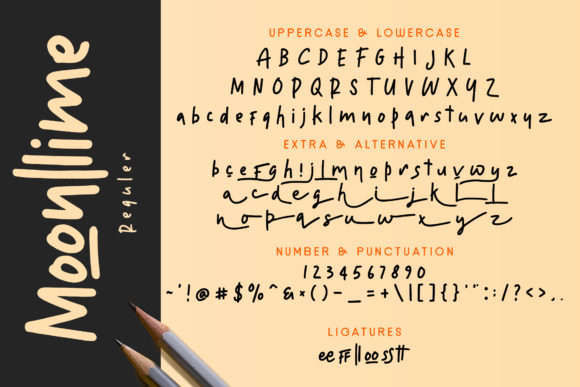 Moonllime
Reguler
UPPERCASE & LOWERCASE
A B C D E F G H I J K L
M N O P Q R S T U V W X Y Z
a b c d e f g h i j k l m n o p q r s t u v w x y z
EXTRA & ALTERNATIVE
b c e f g h i j l m n o p r s t u v w y z
a c d e g h i j k l
n o p q s u w x y z
NUMBER & PUNCTUATION
1 2 3 4 5 6 7 8 9 0
~ ' ! @ # $ % ^ & * ( ) - _ = + \ | [ ] { } ' " : ; / ? < > , .
LIGATURES
ee ff ll oo ss tt